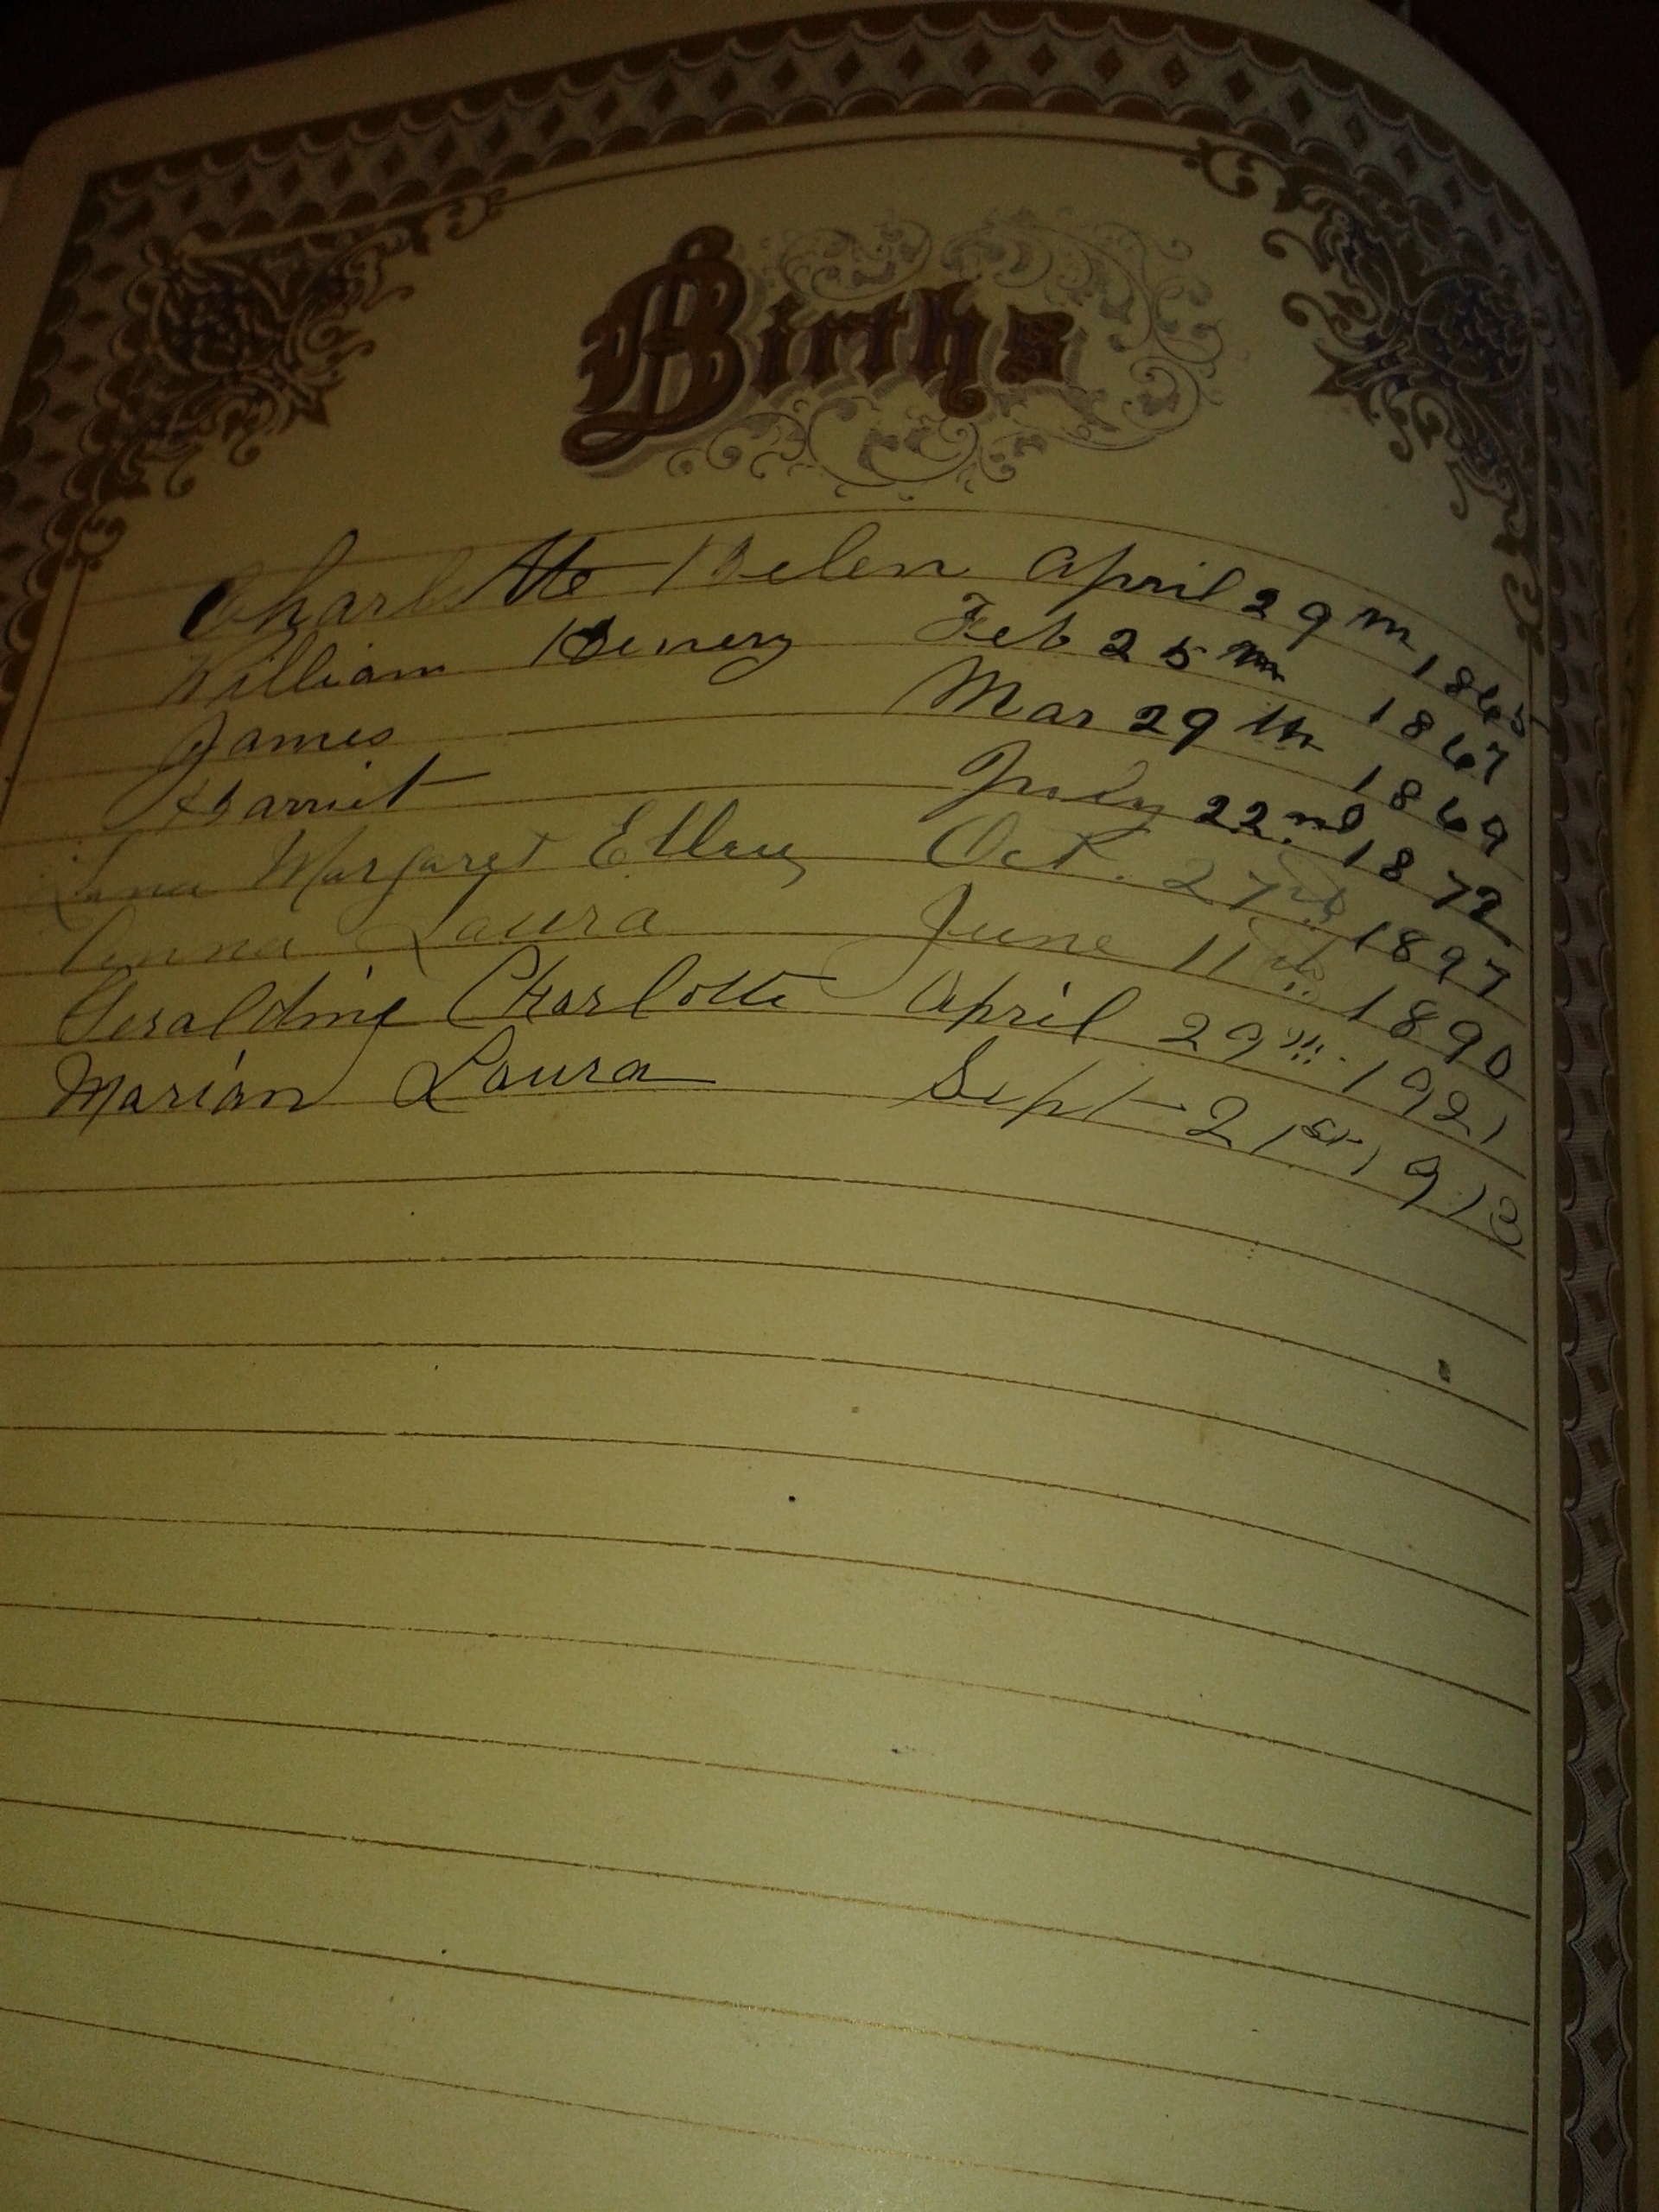 Births
Charlotte Helen April 29th 1865
William Henery Feb 25th 1867
James Mar 29th 1869
Harriet July 22nd 1872
Margaret Oct. 27 1897
Anna Laura June 11th 1890
Geraldine Charlotte April 29th 1921
Marian Laura Sept 21st 1913